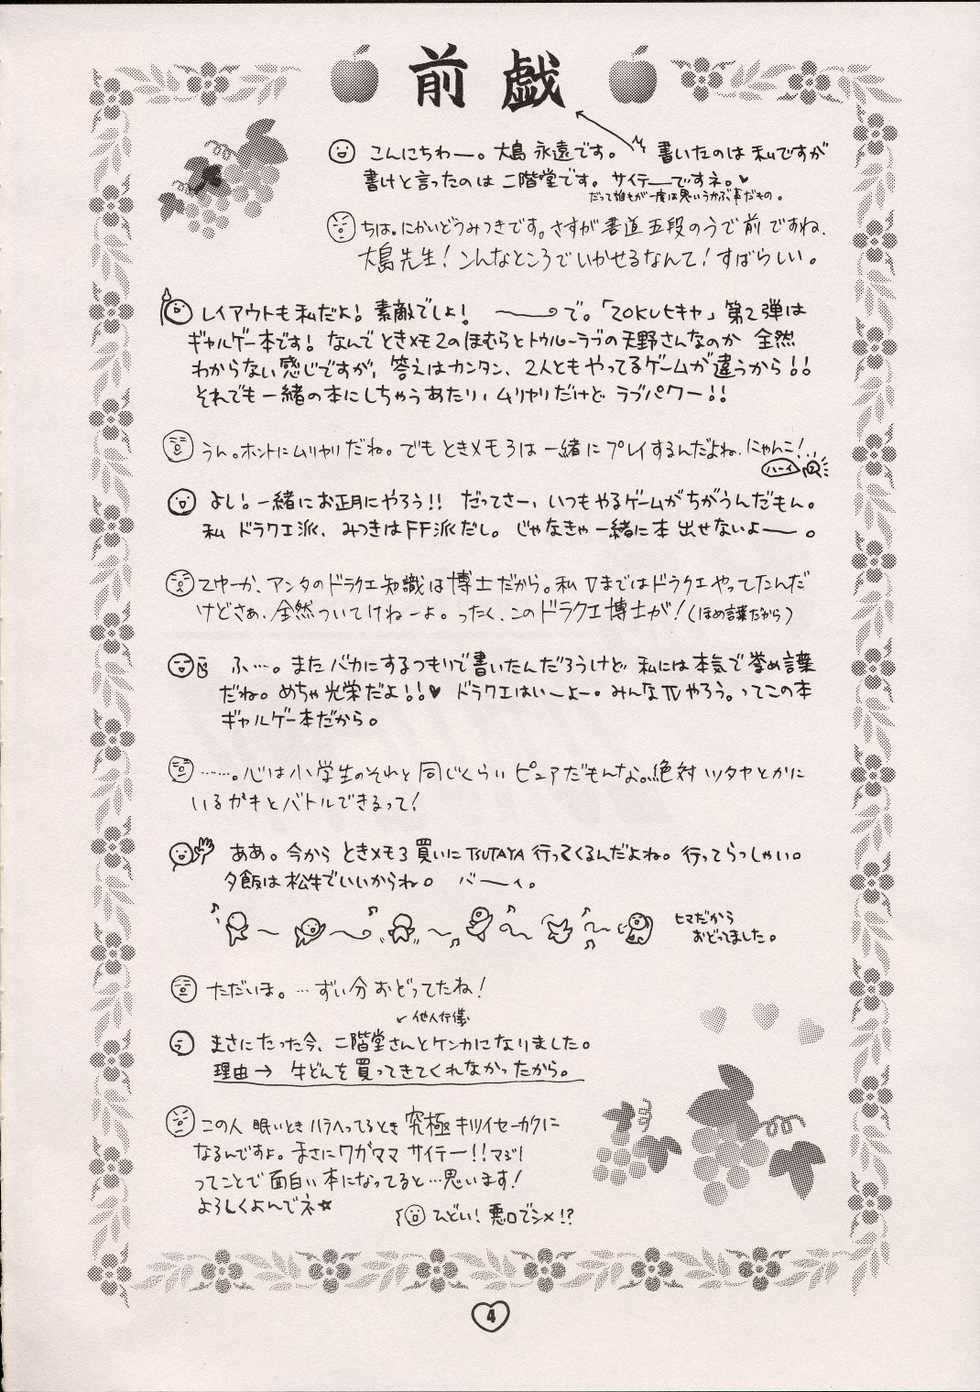 前戯
こんにちわー。大島永遠です。 書いたのは私ですが
書けと言ったのは二階堂です。サイテーですネ。♥
だって誰もが一度は思いうかぶ事だもの。
ちは。にかいどうみつきです。さすが書道五段のうで前ですね、
大島先生!こんなところでいかせるなんて!すばらしい。
レイアウトも私だよ!素敵でしょ! ーーで。「ZOKUヒキヤ」第2弾は
ギャルゲー本です!なんでときメモ2のほむらとトゥルーラブの天野さんなのか 全然
わからない感じですが、答えはカンタン、2人ともやってるゲームが違うから!!
それでも一緒の本にしちゃうあたり、ムリヤリだけど ラブパワー!!
うん。ホントにムリヤリだね。でもときメモ3は一緒にプレイするんだよね、にゃんこ!
ハーイ
よし!一緒にお正月にやろう!! だってさー、いつもやるゲームがちがうんだもん。
私 ドラクエ派、みつきはFF派だし。じゃなきゃ一緒に本出せないよー。
てゆーか、アンタのドラクエ知識は博士だから。私Vまではドラクエやってたんだ
けどさぁ、全然ついてけねーよ。ったく、このドラクエ博士が!(ほめ言葉だから)
ふ…。またバカにするつもりで書いたんだろうけど 私には本気で誉め言葉
だね。めちゃ光栄だよ!!♥ ドラクエはいーよー。みんなⅣやろう。ってこの本
ギャルゲー本だから。
……。心は小学生のそれと同じくらいピュアだもんな。絶対ツタヤとかに
いるガキとバトルできるって!
ああ。今からときメモ3買いにTSUTAYA行ってくるんだよね。行ってらっしゃい。
夕飯は松牛でいいからね。 バーイ。
ヒマだから
おどってました。
ただいま。…ずい分おどってたね!
他人行儀
まさにたった今、二階堂さんとケンカになりました。
理由→ 牛どんを買ってきてくれなかったから。
この人 眠いときハラへってるとき究極キツイセーカクに
なるんですよ。まさにワガママ サイテー!!マジ!
ってことで面白い本になってると…思います!
よろしくよんでネ☆
ひどい!悪口でシメ!?
4